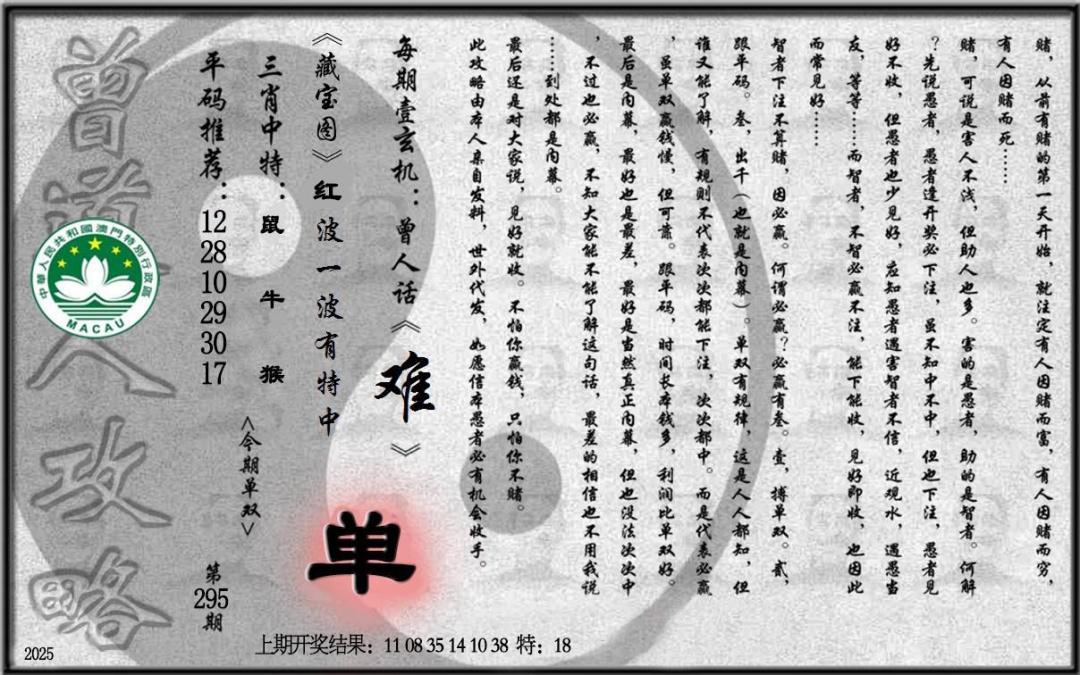 赌，从前有赌的第一天开始，就注定有人因赌而富，有人因赌而穷，
有人因赌而死……
赌，可说是害人不浅，但助人也多。害的是愚者，助的是智者。何解
？先说愚者，愚者逢开奖必下注，虽不知中不中，但也下注，愚者见
好不收，但愚者也少见好，应知愚者遇害智者不信，近观水，遇愚当
友，等等……而智者，不智必赢不注，能下能收，见好即收，也因此
而常见好……
智者下注不算赌，因必赢。何谓必赢？必赢有叁。壹，搏单双。贰，
跟平码。叁，出千（也就是内幕）。单双有规律，这是人人都知，但
谁又能了解，有规则不代表次次都能下注，次次都中。而是代表必赢
，虽单双赢钱慢，但可靠。跟平码，时间长本钱多，利润比单双好。
最后是内幕，最好也是最差，最好是当然真正内幕，但也没法次次中
，不过也必赢，不知大家能不能了解这句话，最差的相信也不用我说
……到处都是内幕。
最后还是对大家说，见好就收。不怕你赢钱，只怕你不赌。
此攻略由本人亲自发料，世外代发，如愿信本愚者必有机会收手。
每期壹玄机：曾人话《难》
《藏宝图》红波一波有特中
单
三肖中特：鼠 牛 猴
<今期单双>
平码推荐：12 28 10 29 30 17
第295期
曾道人攻略
中華人民共和國澳門特別行政區
MACAU
上期开奖结果：11 08 35 14 10 38 特：18
2025